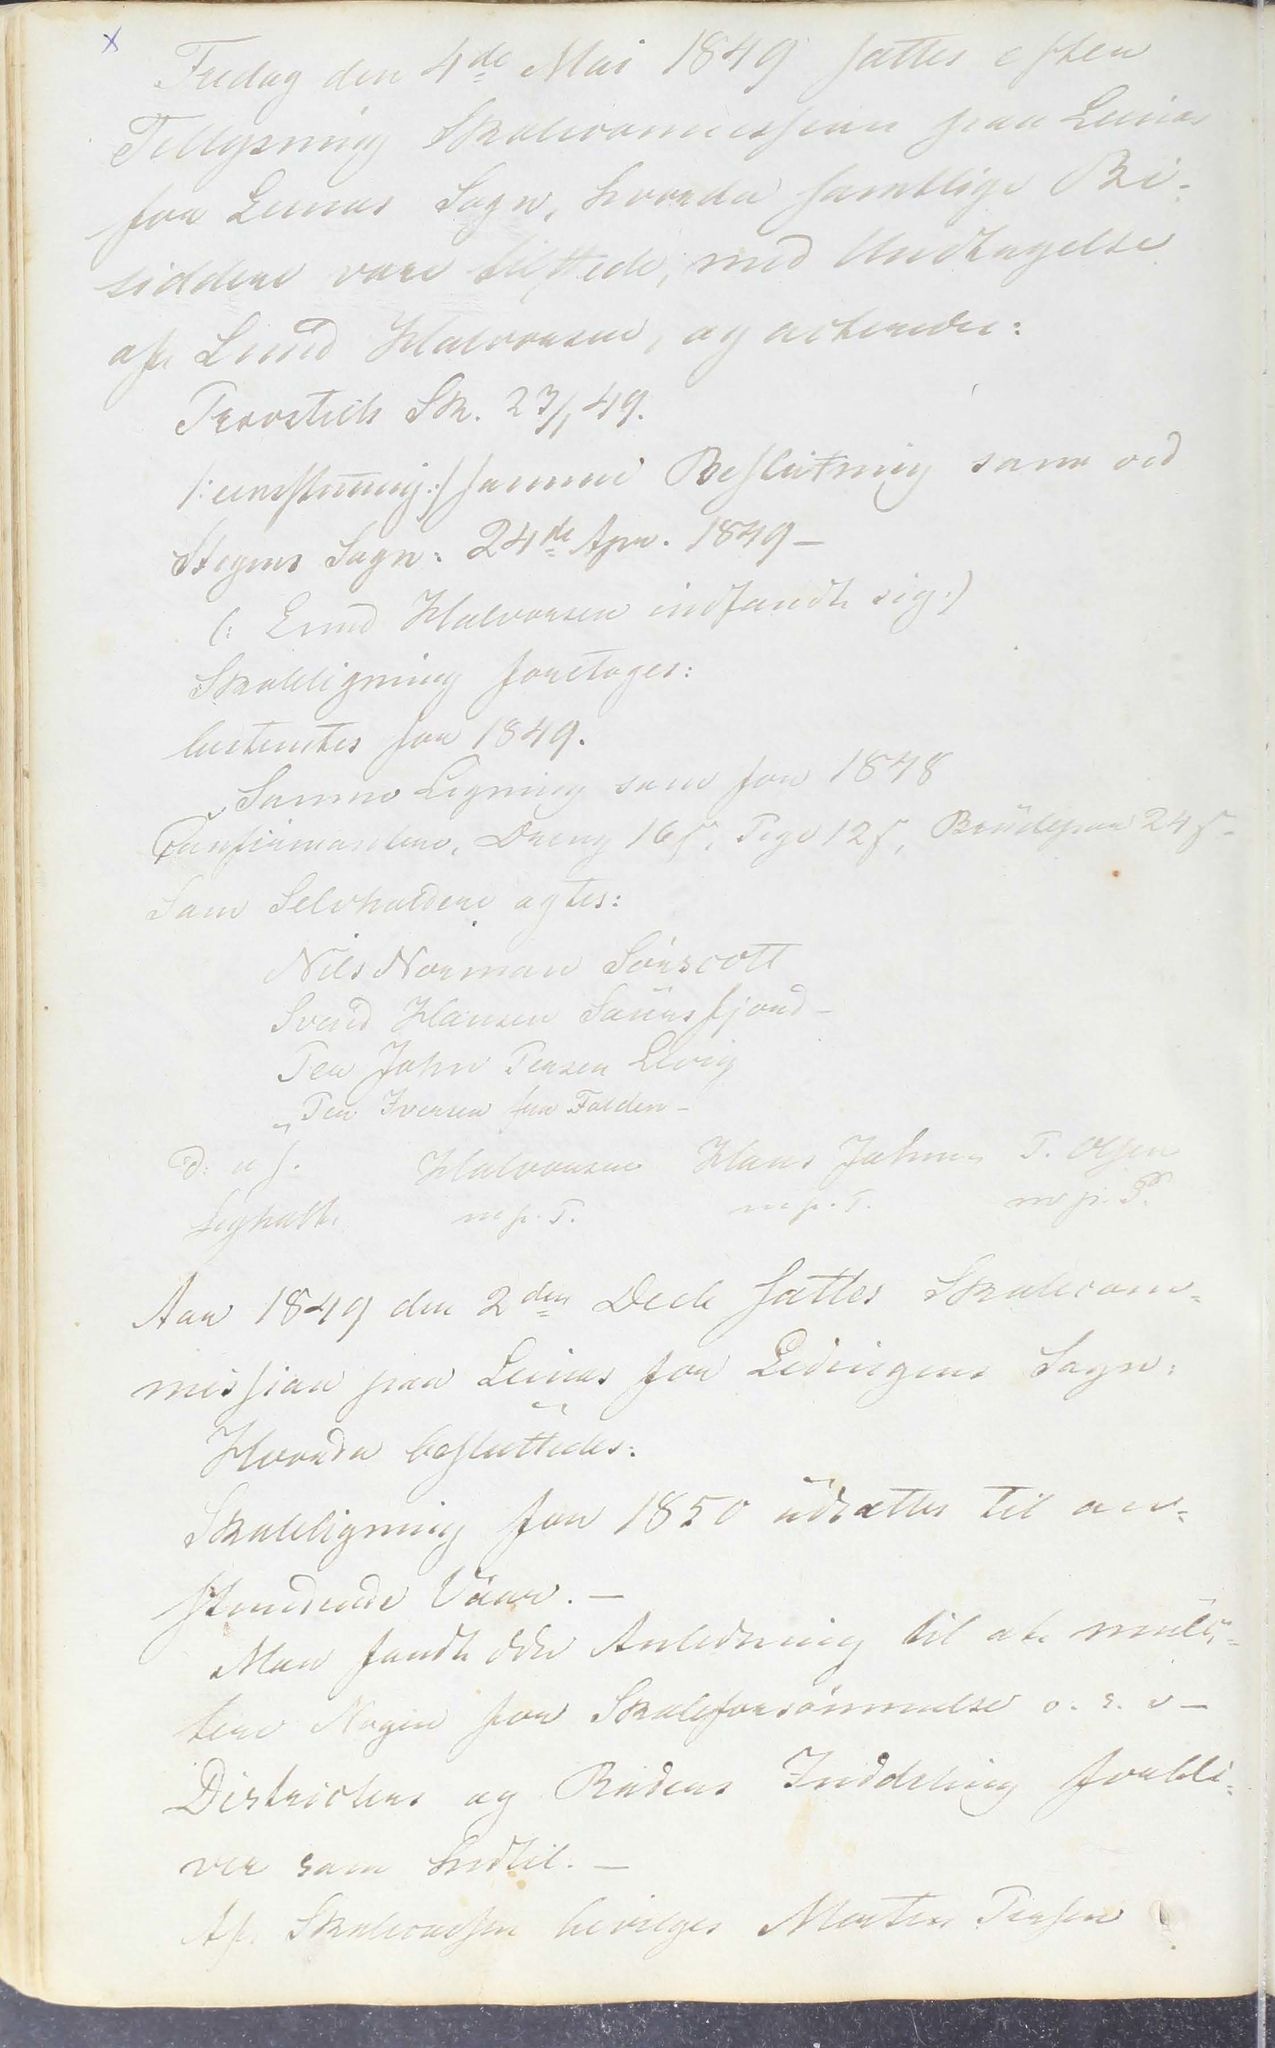 x
Fredag den 4de Mai 1849 sattes efter
Tillysning Skolecommission paa Leines
for Leines Sogn, hvorda samtlige Bi-
siddere vare tilstede, med Undtagelse
af Halvorsen, og acterede:
Provstiets Sk. 23/1 49.
/: eenstemig :/ samme Beslutning som ved
Stegens Sogn: 24de Apr. 1849 –
(: Halvorsen indfandt sig :)
Skoleligning foretoges:
for 1849.
Samme Ligning som for 1848
Confirmander, Dreng 16 s, Pige 12 s, Brüdepar 24 s.
Som Selvholdere agtes:
Nils Norman Sörscott
Svend Hansen Saursfjord –
Peer John Persen Levig
Peer Iversen fra Folden –
D. u s.
Halvorsen Hans Johns P. Olsen
m. p. P. m. p. P. m. p. P.
Aar 1849 den 2den Decb sattes Skolecom-
mission paa Leines for Ledingens Sogn:
Hvorda besluttedes:
Skoleligning for 1850 udsættes til an-
stundende Vaar. –
Man fandt ikke Anledning til at mulk-
tere Nogen for Skoleforsömmelse o. s. v –
Districters og Roders Inddeling forbli-
ver som hidtil. –
Af Skolecassen bevilges Morten Persen